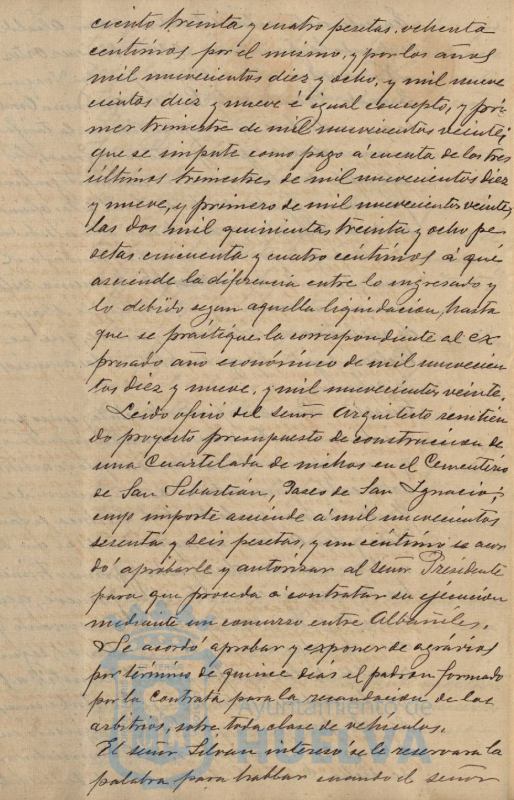 ciento treinta y cuatro pesetas, ochenta
céntimos por el mismo, y por los años
mil nuevecientos diez y ocho, y mil nueve
cientos diez y nueve é igual concepto, y pri-
mer trimestre de mil nuevecientos veinte;
que se impute como pago á cuenta de los tres
últimos trimestres de mil nuevecientos diez
y nueve, y primero de mil nuevecientos veinte,
las dos mil quinientas treinta y ocho pe
setas cincuenta y cuatro céntimos á que
asciende la diferencia entre lo ingresado y
lo debido segun aquella liquidacion, hasta
que se practique la correspondiente al ex
presado año económico de mil nuevecien
tos diez y nueve, y mil nuevecientos veinte.
Leido oficio del señor Arquitecto remitien
do proyecto presupuesto de construccion de
una Cuartelada de nichos en el Cementerio
de San Sebastián, Paseo de San Ignacio,
cuyo importe asciende á mil nuevecientos
sesenta y seis pesetas, y un céntimo se acor
dó aprobarle y autorizar al señor Presidente
para que proceda á contratar su ejecucion
mediante un concurso entre Albañiles.
Se acordó aprobar y exponer de agravios
por término de quince dias el padron formado
por la Contrata para la recaudacion de los
arbitrios, sobre toda clase de vehículos.
El señor Silván interesó se le reservara la
palabra para hablar cuando el señor
Ayuntamiento de
HUELVA